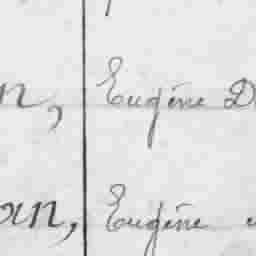 n, Eugène D
an, Eugène